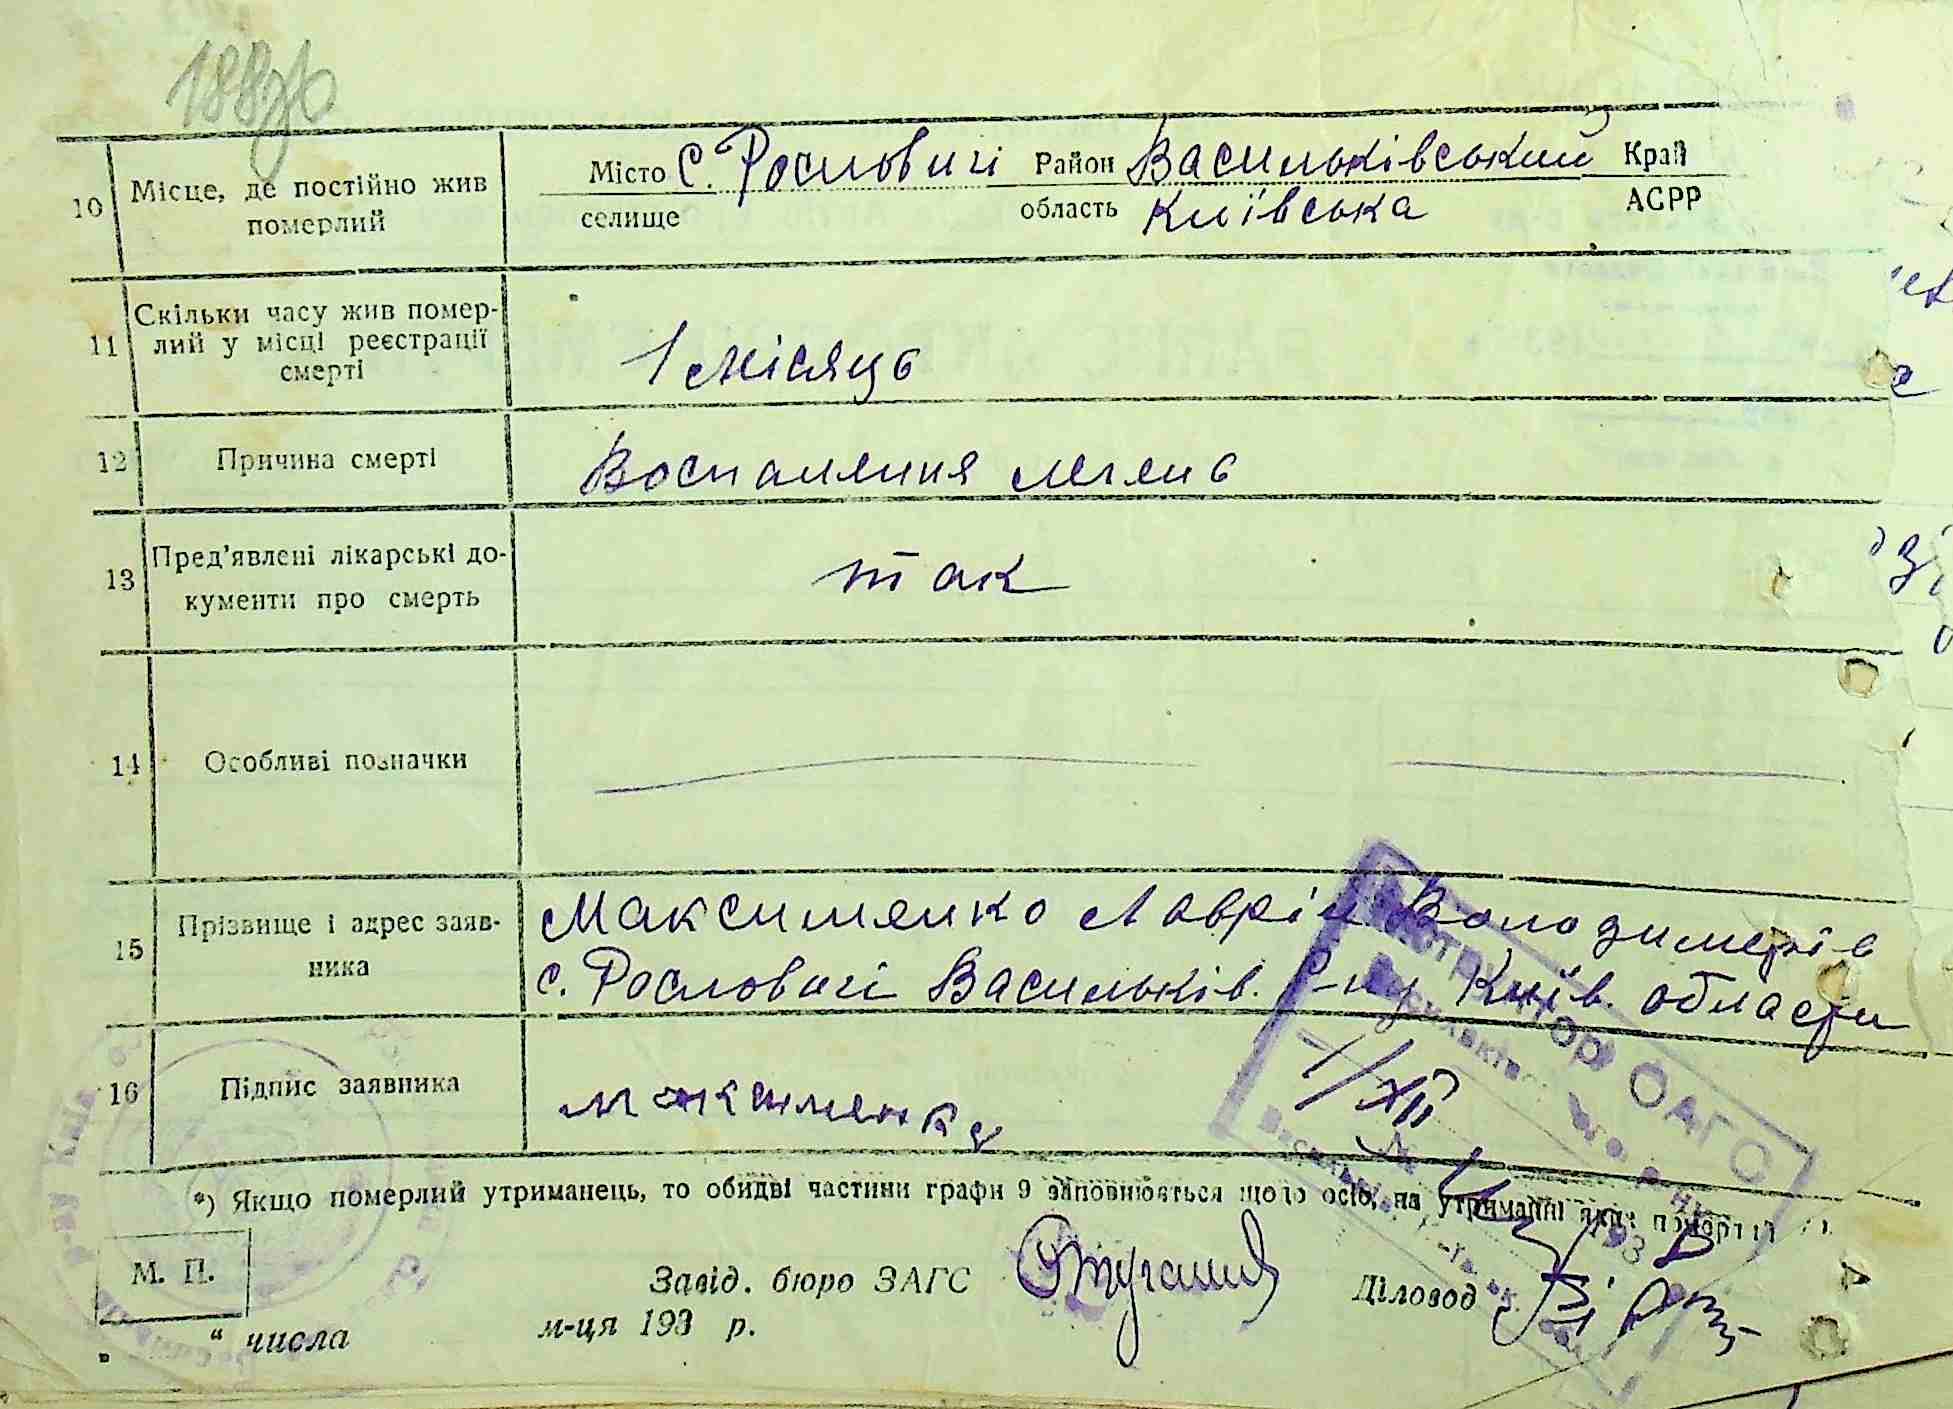 188зв
10 Місце, де постійно жив померлий
Місто с. Рословичі Район Васильківський Край
селище область Київська АСРР
11 Скільки часу жив помер-
лий у місці реєстрації
смерті
1 місяць
12 Причина смерті
Воспаления легень
13 Пред'явлені лікарські до-
кументи про смерть
так
14 Особливі позначки
15 Прізвище і адрес заяв-
ника
Максименко Лаврін Володимерів
с. Рословичі Васильків. р-ну Київ. области
16 Підпис заявника
максименко
1/XII
*) Якщо померлий утриманець, то обидві частини графи 9 заповнюється щодо осіб, на утриманні яких
М. П.
Завід. бюро ЗАГС
Діловод
" числа м-ця 193 р.
ОАГС